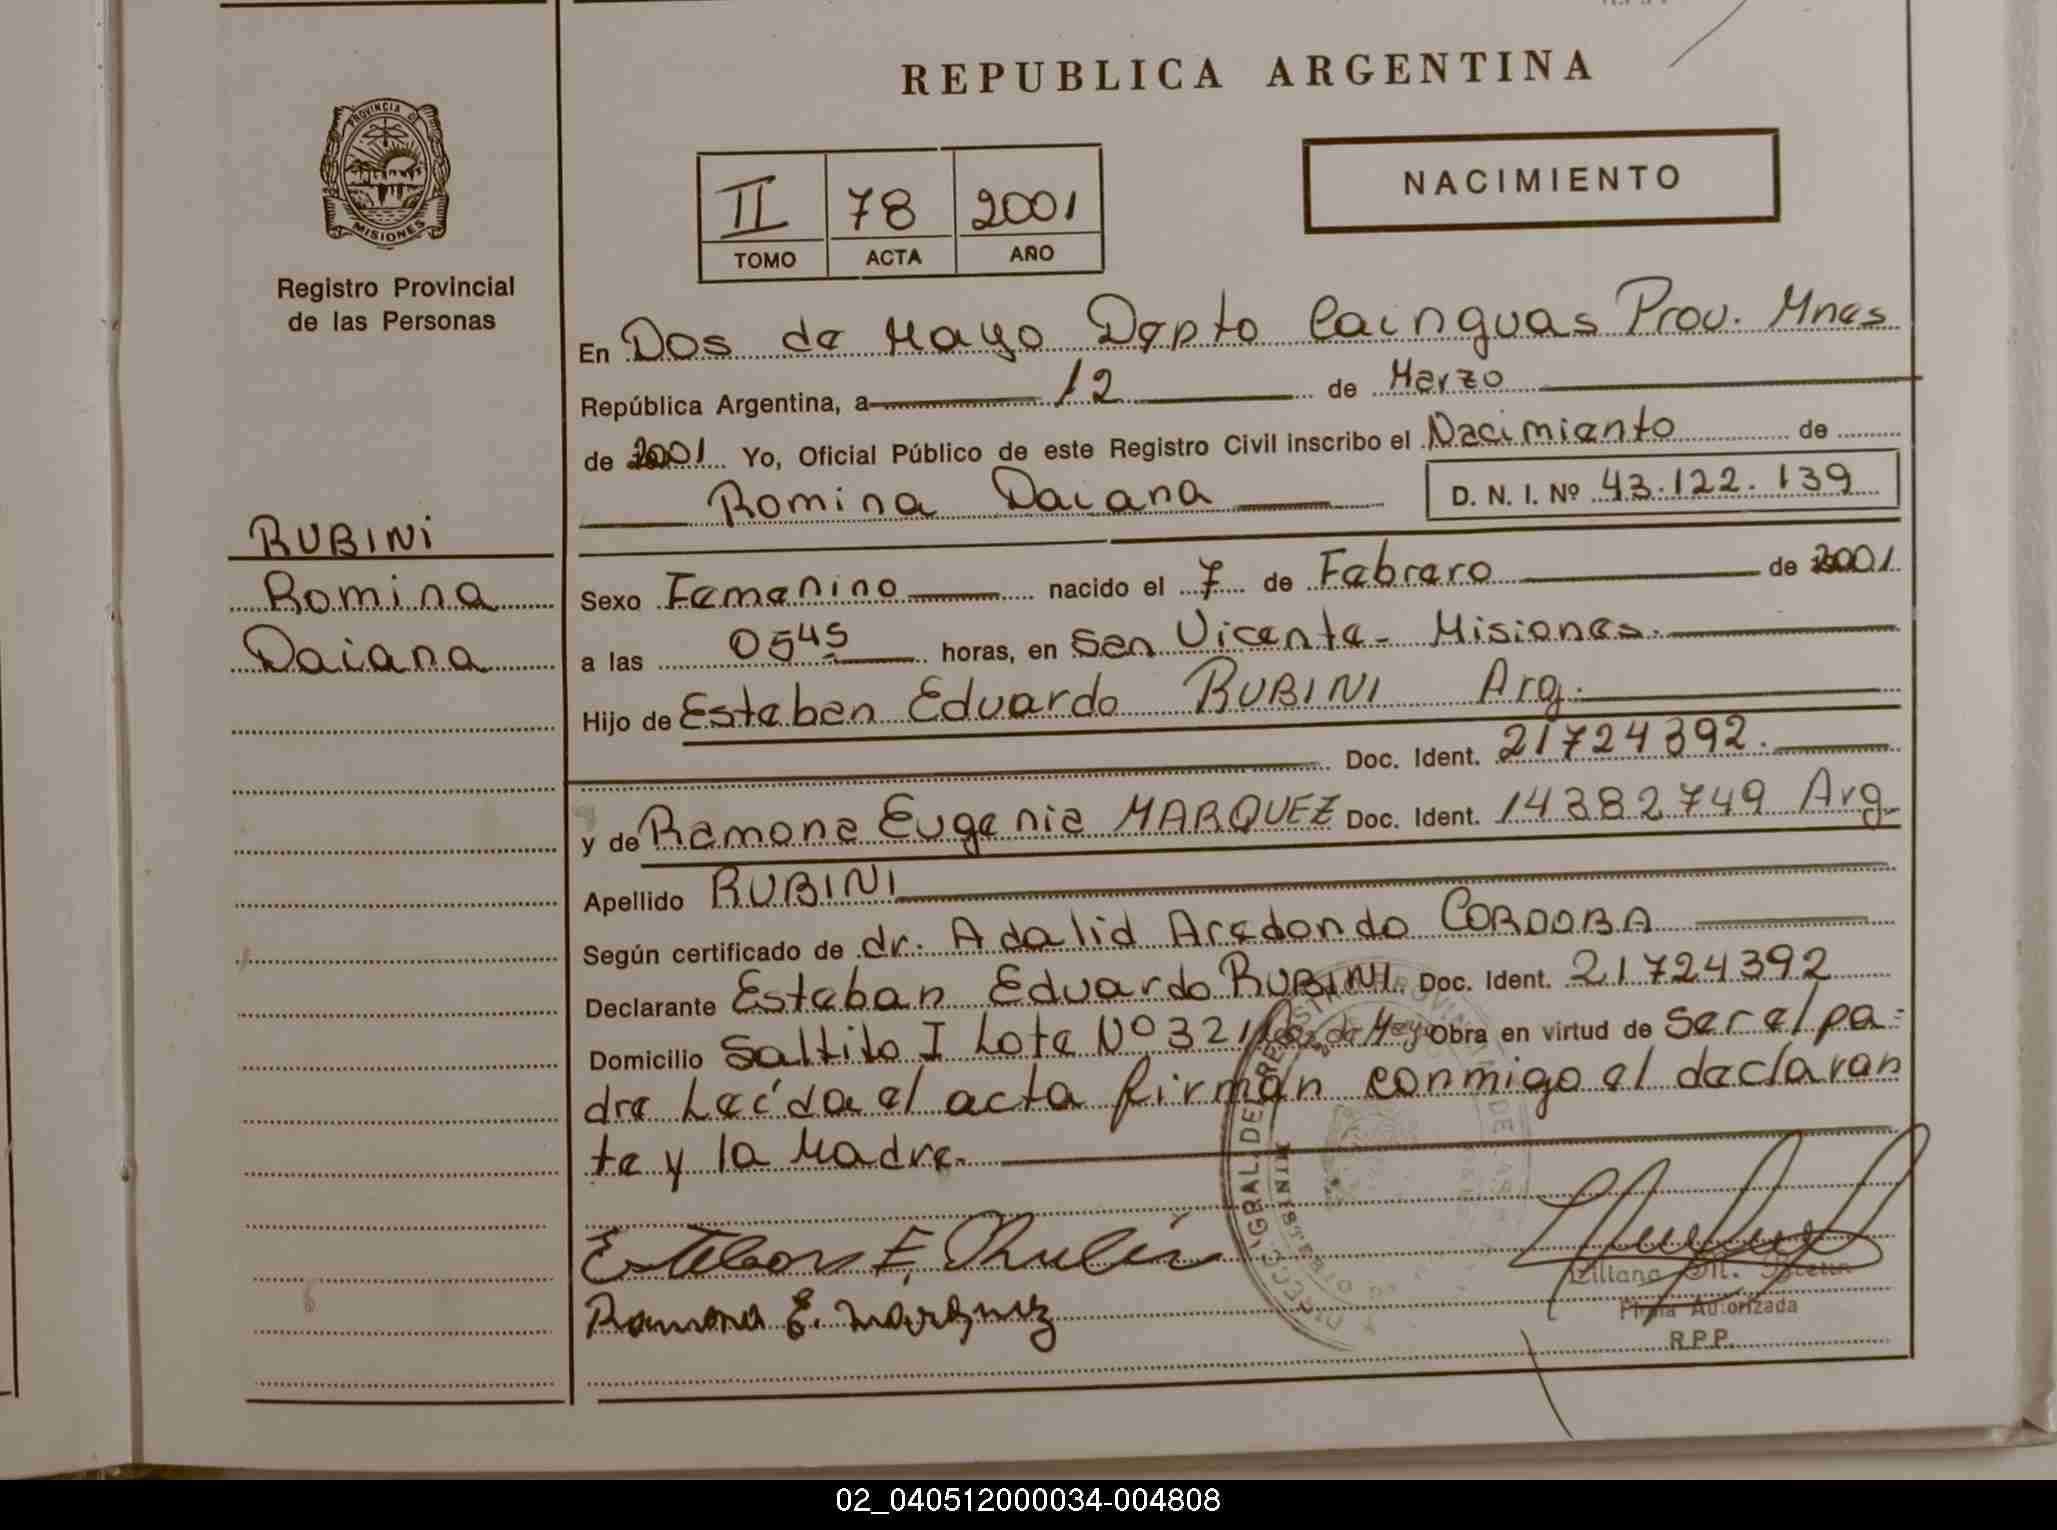 REPUBLICA ARGENTINA
PROVINCIA DE
MISIONES
Registro Provincial
de las Personas
II 78 2001
TOMO ACTA AÑO
NACIMIENTO
En Dos de Mayo Depto Cainguas Prov. Mnes
República Argentina, a 12 de Marzo
de 2001 Yo, Oficial Público de este Registro Civil inscribo el Nacimiento de
Romina Daiana D. N. I. Nº 43.122.139
RUBINI
Romina
Daiana
Sexo Femenino nacido el 7 de Febrero de 2001
a las 05 45 horas, en San Vicente - Misiones.
Hijo de Esteban Eduardo RUBINI Arg.
Doc. Ident. 21724392.
y de Ramona Eugenia MARQUEZ Doc. Ident. 14382749 Arg
Apellido RUBINI
Según certificado de dr. Adalid Aredondo CORDOBA
Declarante Esteban Eduardo RUBINI Doc. Ident. 21724392
Domicilio Saltito I Lote Nº 321 Dos de Mayo Obra en virtud de ser el pa-
dre Leída el acta firman conmigo el declaran
te y la Madre.
Esteban E. Rubini
Ramona E. Marquez
Liliana
Firma Autorizada
R.P.P.
02_040512000034-004808